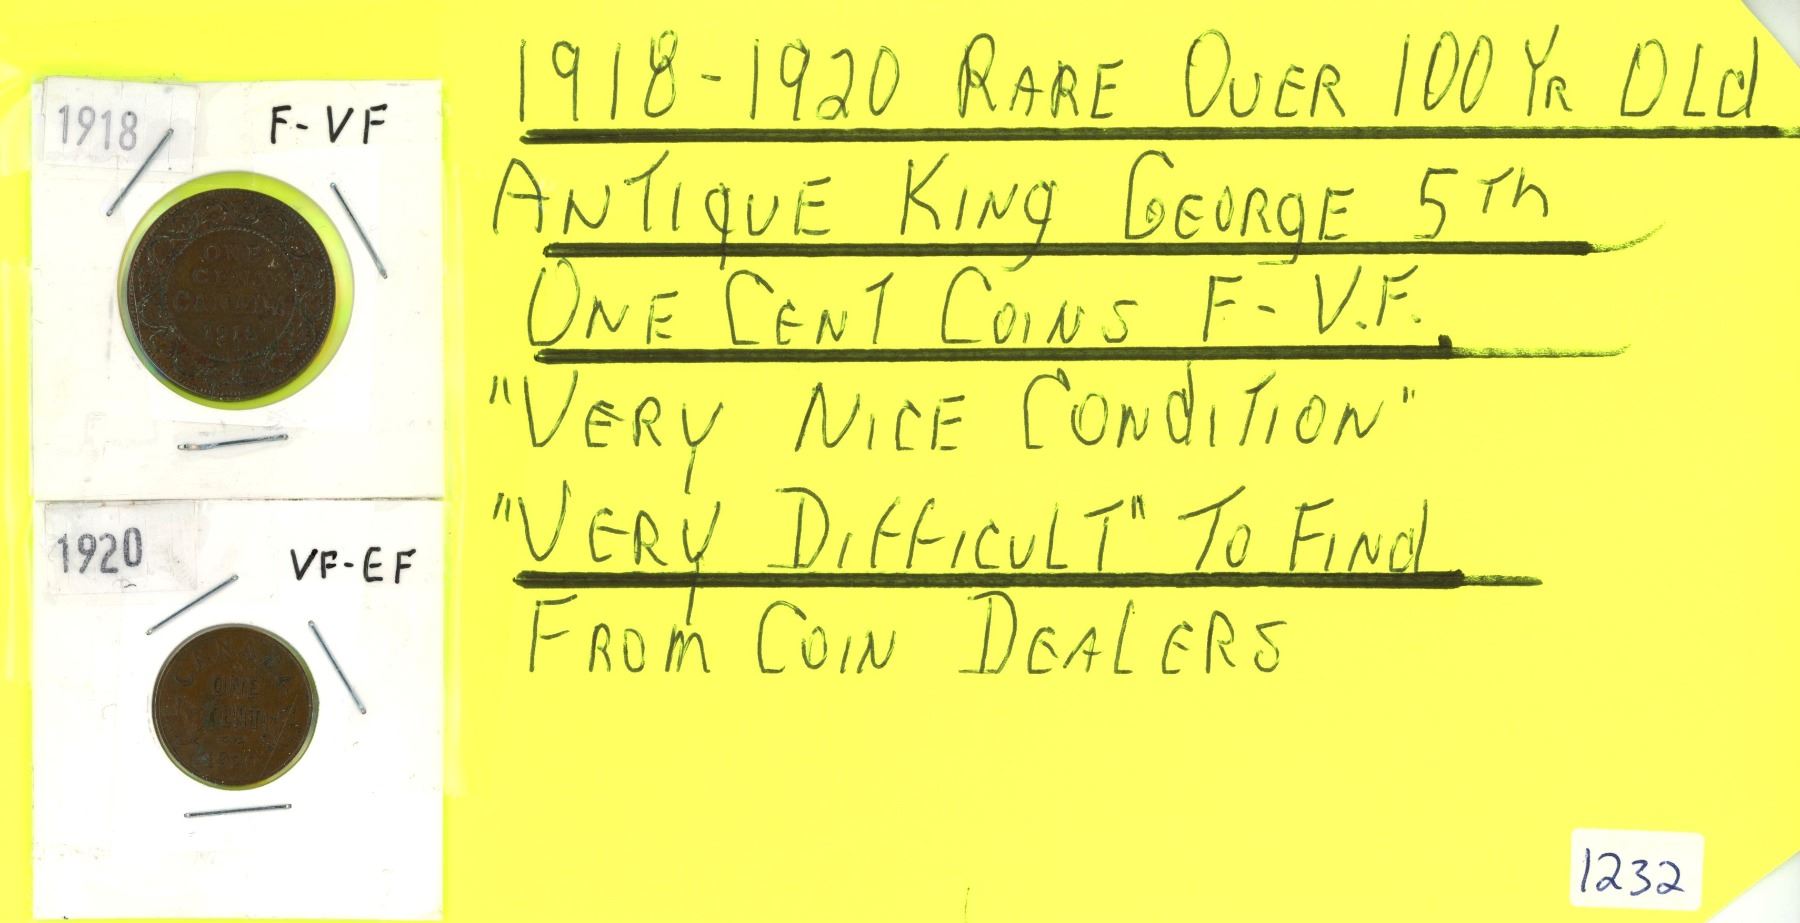 1918
F-VF
ONE
CENT
CANADA
1918
1920
VF-EF
CANADA
ONE
CENT
1920
1918-1920 RARE OVER 100 YR OLd
ANTIQUE KING GEORGE 5Th
ONE CENT COINS F-V.F.
"VERY NICE CONdITION"
"VERY DIFFICULT" TO FINd
FROM COIN DEALERS
1232